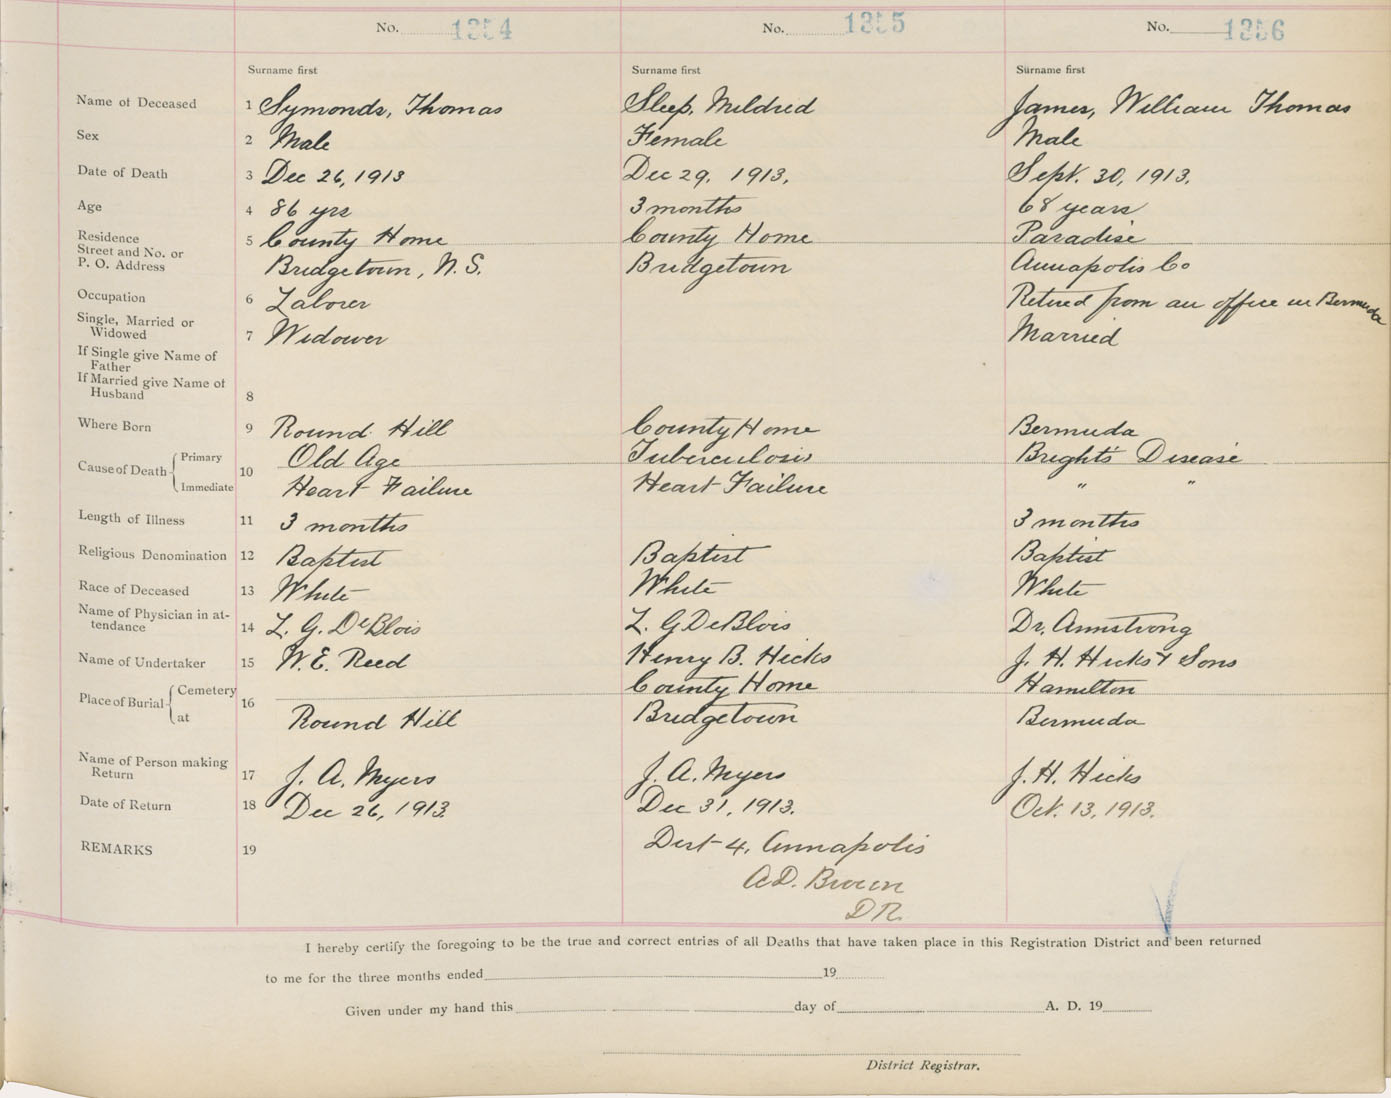 No. 1354 No. 1355 No. 1356
Surname first Surname first Surname first
Name of Deceased 1 Symonds, Thomas Sleep, Mildred James, William Thomas
Sex 2 Male Female Male
Date of Death 3 Dec 26, 1913 Dec 29. 1913. Sept. 30, 1913.
Age 4 86 yrs 3 months 68 years
Residence 5 County Home County Home Paradise
Street and No. or
P. O. Address Bridgetown, N.S. Bridgetown Annapolis Co
Occupation 6 Laborer Retired from an office in Bermuda
Single, Married or
Widowed 7 Widower Married
If Single give Name of
Father
If Married give Name of
Husband 8
Where Born 9 Round Hill County Home Bermuda
Cause of Death 10 Primary Old Age Tuberculosis Bright's Disease
Immediate Heart Failure Heart Failure " "
Length of Illness 11 3 months 3 months
Religious Denomination 12 Baptist Baptist Baptist
Race of Deceased 13 White White White
Name of Physician in at-
tendance 14 L. G. DeBlois L. G DeBlois Dr. Armstrong
Name of Undertaker 15 W. E. Reed Henry B. Hicks J. H. Hicks & Sons
Place of Burial 16 Cemetery County Home Hamilton
at Round Hill Bridgetown Bermuda
Name of Person making
Return 17 J. A. Myers J. A. Myers J. H. Hicks
Date of Return 18 Dec 26, 1913. Dec 31, 1913. Oct. 13, 1913.
REMARKS 19 Dist 4, Annapolis
A.D. Brown
D R.
I hereby certify the foregoing to be the true and correct entries of all Deaths that have taken place in this Registration District and been returned
to me for the three months ended 19
Given under my hand this day of A. D. 19
District Registrar.